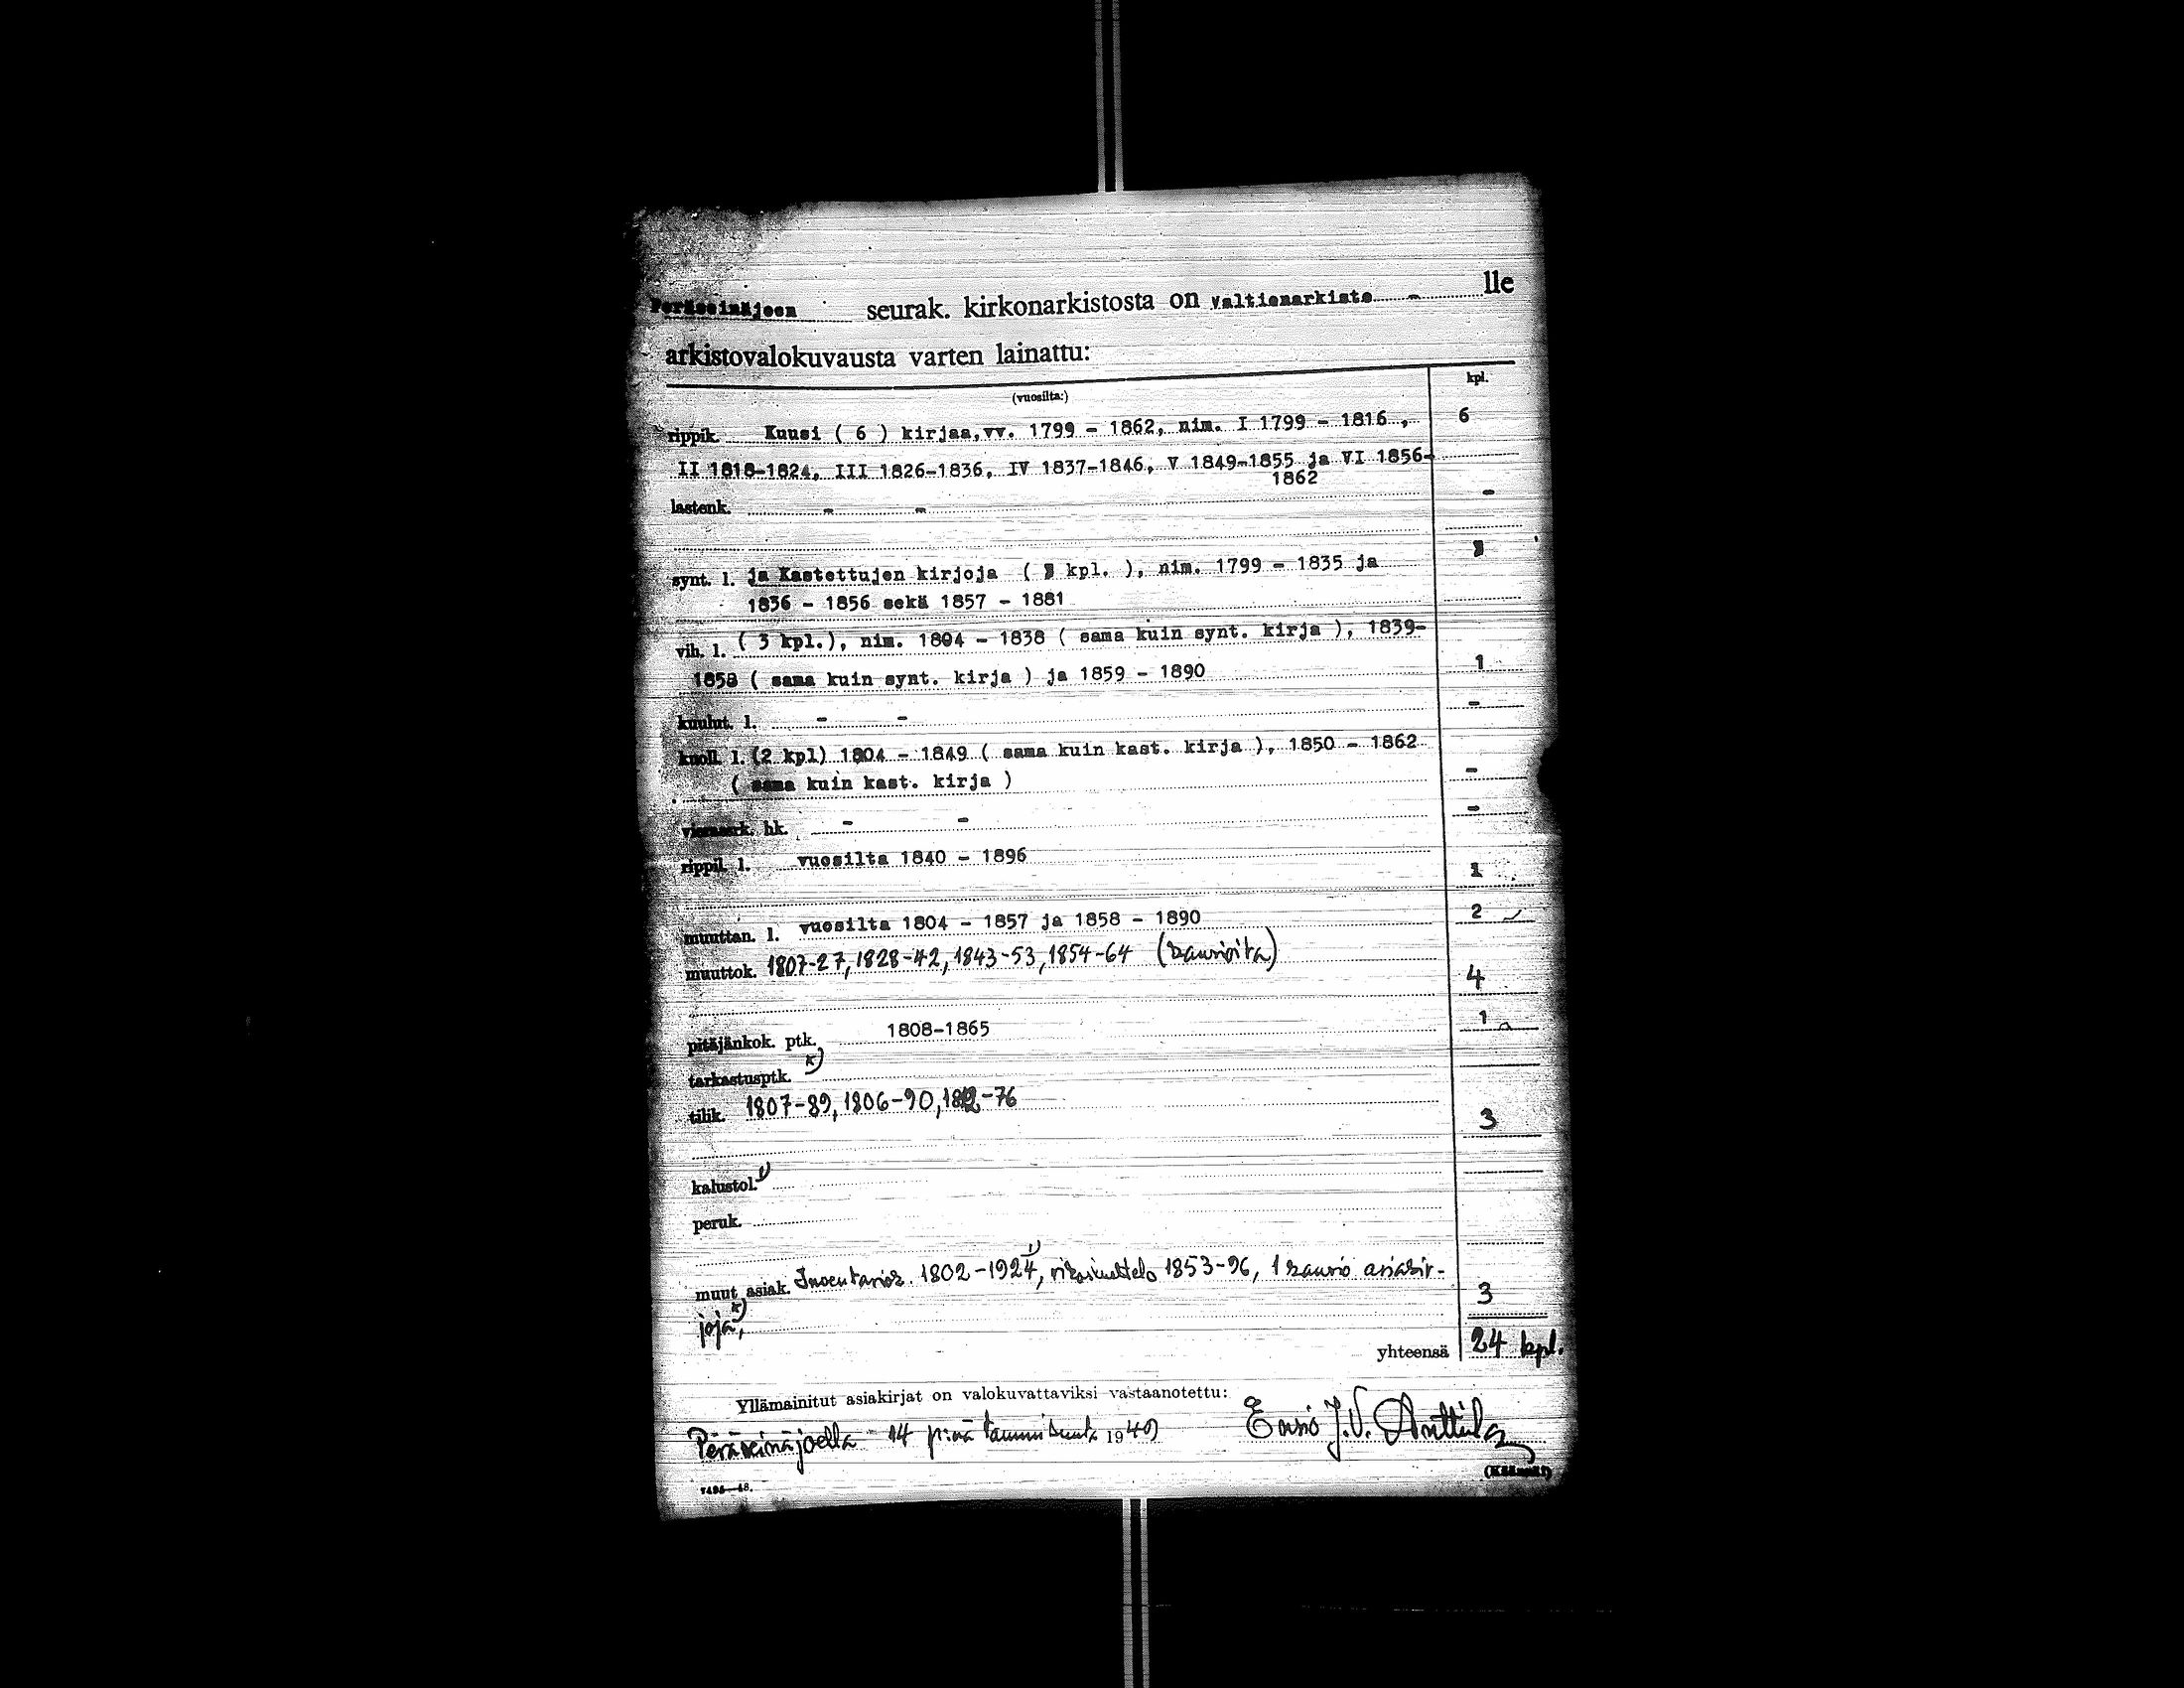 Peräseinäjoen seurak. kirkonarkistosta on valtionarkisto - lle
arkistovalokuvausta varten lainattu:
(vuosilta:) kpl.
rippik. Kuusi ( 6 ) kirjaa,vv. 1799 - 1862, nim. I 1799 - 1816 , 6
II 1818-1824, III 1826-1836, IV 1837-1846, V 1849-1855 ja VI 1856-
1862
lastenk. - - -
synt. l. ja Kastettujen kirjoja ( kpl. ), nim. 1799 - 1835 ja
1836 - 1856 sekä 1857 - 1881
vih. l. ( 3 kpl.), nim. 1804 - 1838 ( sama kuin synt. kirja ), 1839-
1858 ( sama kuin synt. kirja ) ja 1859 - 1890 1
kuulut. l. - - -
kuoll. l. (2 kpl) 1804 - 1849 ( sama kuin kast. kirja ), 1850 - 1862
( sama kuin kast. kirja ) -
hk. - - -
rippil. l. vuosilta 1840 - 1896 1
muuttan. l. vuosilta 1804 - 1857 ja 1858 - 1890 2
muuttok. 1807-27, 1828-42, 1843-53, 1854-64 (kansioita) 4
pitäjänkok. ptk. 1808-1865 1
tarkastusptk. x)
tilik. 1807-89, 1806-90, -76 3
kalustol. 1)
peruk.
muut asiak. Inventariok. 1802-1924 1), rikosluettelo 1853-96, 1 kansio asiakir-
joja x), 3
yhteensä 24 kpl.
Yllämainitut asiakirjat on valokuvattaviksi vastaanotettu:
Peräseinäjoella 14 p:nä tammikuuta 1949 Ensio J.V. Anttila